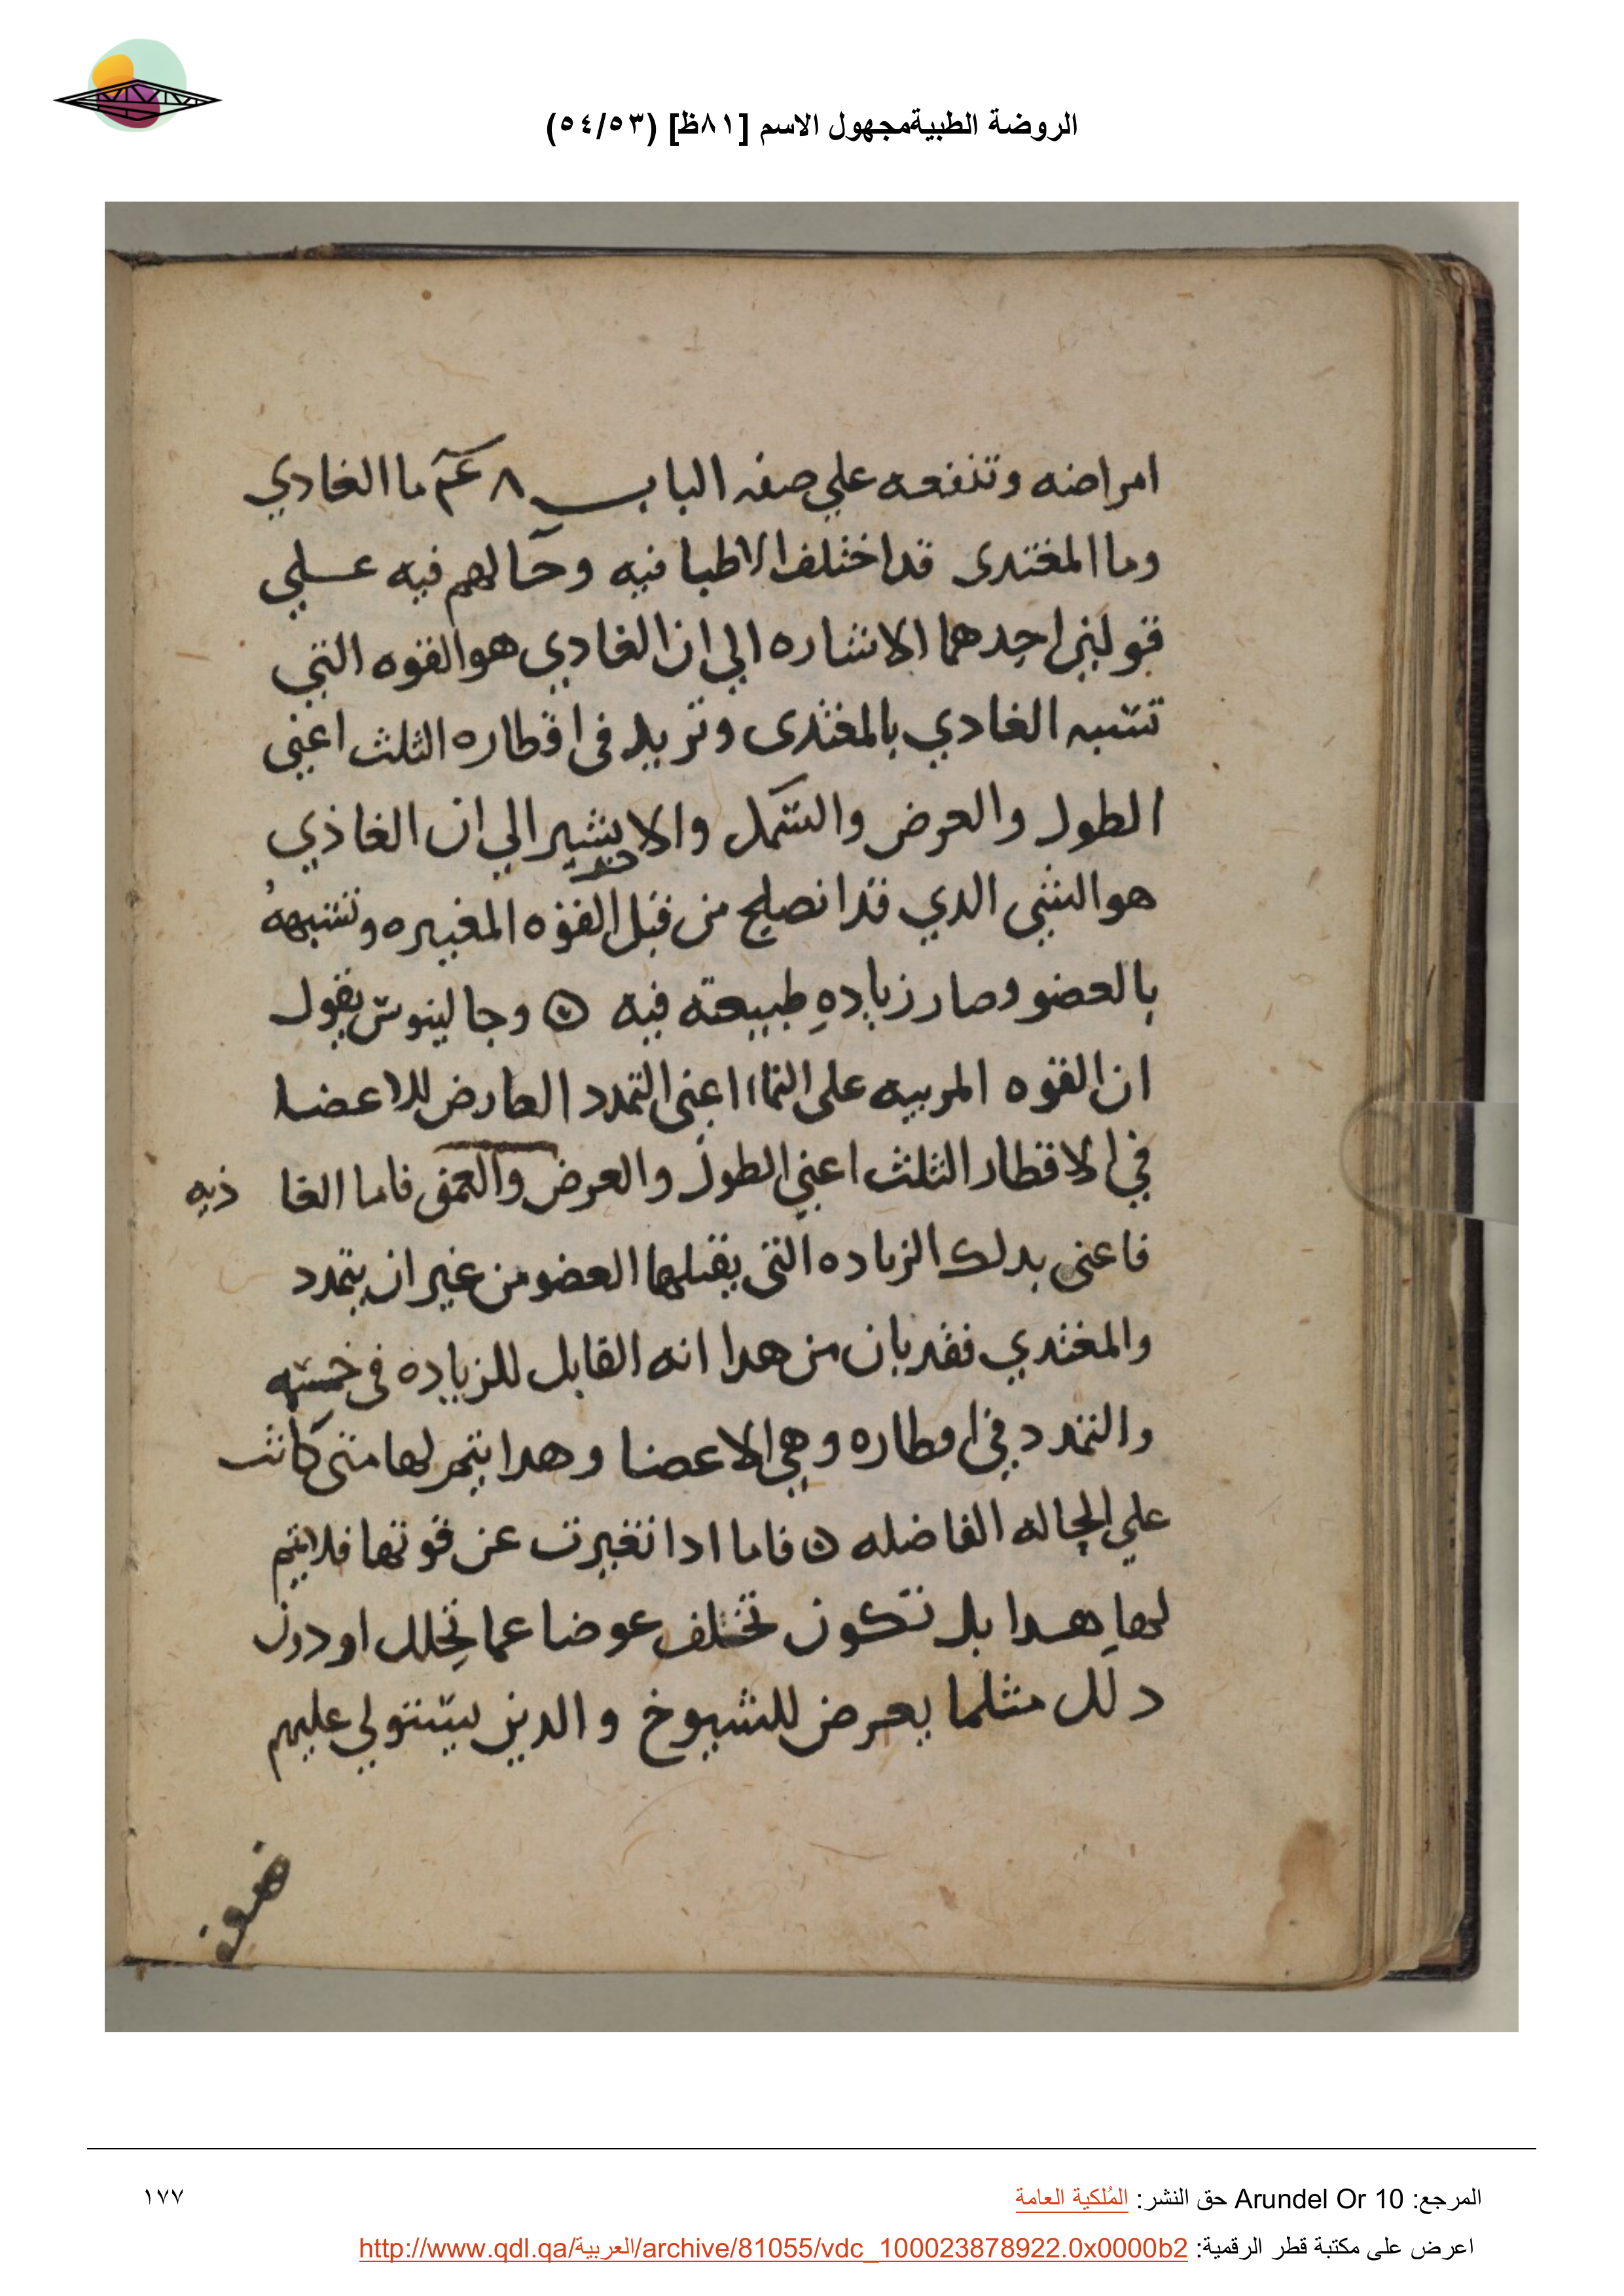 الروضة الطبيةمجهول الاسم [٨١ظ] (٥٤/٥٣)
امراضه وتنفعه علي صفه الباب ٨ عم ما الغادي
وما المغتدى قد اختلف الاطبا فيه وحالهم فيه علي
قولين احدهما الاشاره الي ان الغادي هو القوه التي
تشبه الغادي بالمغتدى وتزيد فى اقطاره الثلث اعني
الطول والعرض والشكل والا يشير الي ان الغاذي
خر
هو الشي الدي قد انصلح من قبل القوه المغيره وتشبهه
بالعضو وصار زياده طبيعته فيه ⊙ وجالينوس يقول
ان القوه المربيه على النماا اعنى التمدد العارض للاعضا
في الاقطار الثلث اعني الطول والعرض والعمق فاما الغا ذيه
فاعنى بدلك الزياده التى يقبلها العضو من غير ان يتمدد
والمغتدي فقد بان من هدا انه القابل للزياده فى
والتمدد في اقطاره وهي الاعضا وهدا يتم لها متى كانت
علي الحاله الفاضله ⊙ فاما ادا تغيرت عن قوتها فلا يتم
لها هدا بل تكون تخلف عوضا عما تحلل او دون
دلك مثلما يعرض للشيوخ والدين يستولي عليهم
المرجع: Arundel Or 10 حق النشر: المُلكية العامة
١٧٧
اعرض على مكتبة قطر الرقمية: http://www.qdl.qa/العربية/archive/81055/vdc_100023878922.0x0000b2